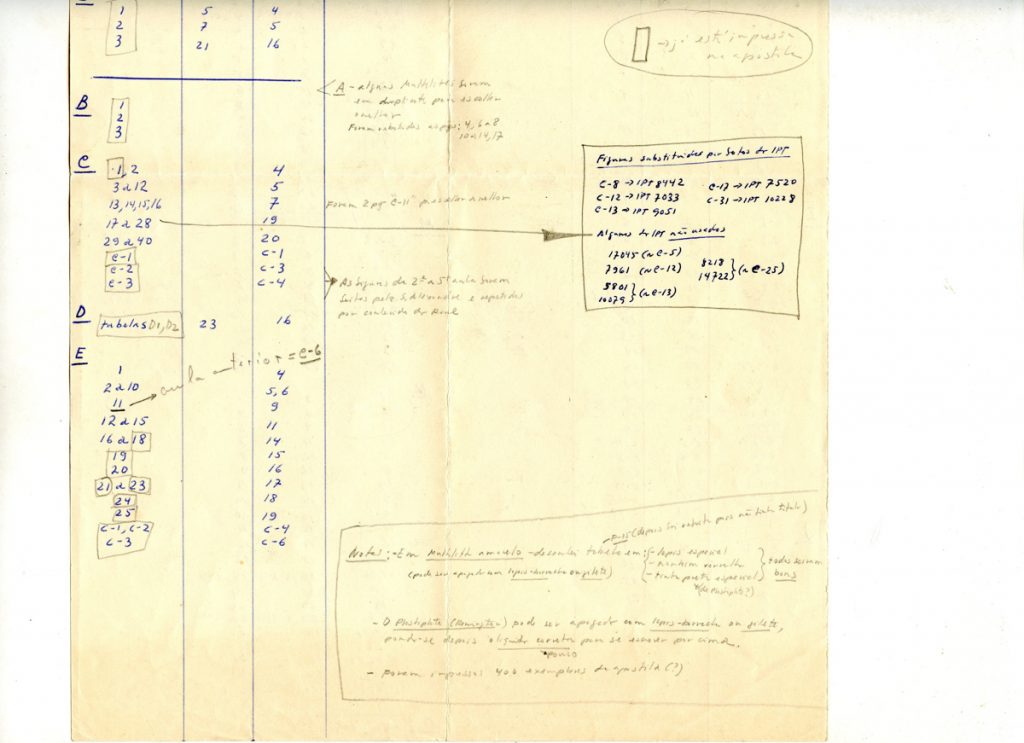 1 5 4
2 7 5
3 21 16
→ já está impressa
na apostila
A - alguns Multilites foram
em duplicata para escolher
o melhor
Foram substituídas as pgs: 4, 6 a 8
10 a 14, 17
B 1
2
3
C 1, 2 4
3 a 12 5
13, 14, 15, 16 7
17 a 28 19
29 a 40 20
C-1 C-1
C-2 C-3
C-3 C-4
Foram 2 pg C-11 para o melhor
As figuras da 2ª a 5ª aula foram
feitas pelo e repetidas
por
Figuras substituídas por fotos do IPT
C-8 → IPT 8442 C-17 → IPT 7520
C-12 → IPT 7033 C-31 → IPT 10228
C-13 → IPT 9051
Algumas do IPT não usadas
17045 (~ C-5)
7961 (~ C-12) 8218
14722 } (~ C-25)
5801
10079 } (~ C-13)
D tabelas D1, D2 23 16
E
aula anterior = C-6
1 4
2 a 10 5, 6
11 9
12 a 15 11
16 a 18 14
19 15
20 16
21 a 23 17
24 18
25 19
C-1, C-2 C-4
C-3 C-6
(depois foi coberta para não tinha título)
Notas: - Em Multilith amarelo - desenhei tabela em: - lapis especial
- nankim vermelho
- tinta preta especial
todos foram
bons
(pode ser apagado com lapis-borracha ou gilete)
(de Plastiplate?)
- O Plastiplate (Remington) pode ser apagado com lapis-borracha ou gilete,
pondo-se depois o líquido corretor para se escrever por cima.
pouco
- Foram impressos 400 exemplares da apostila (?)